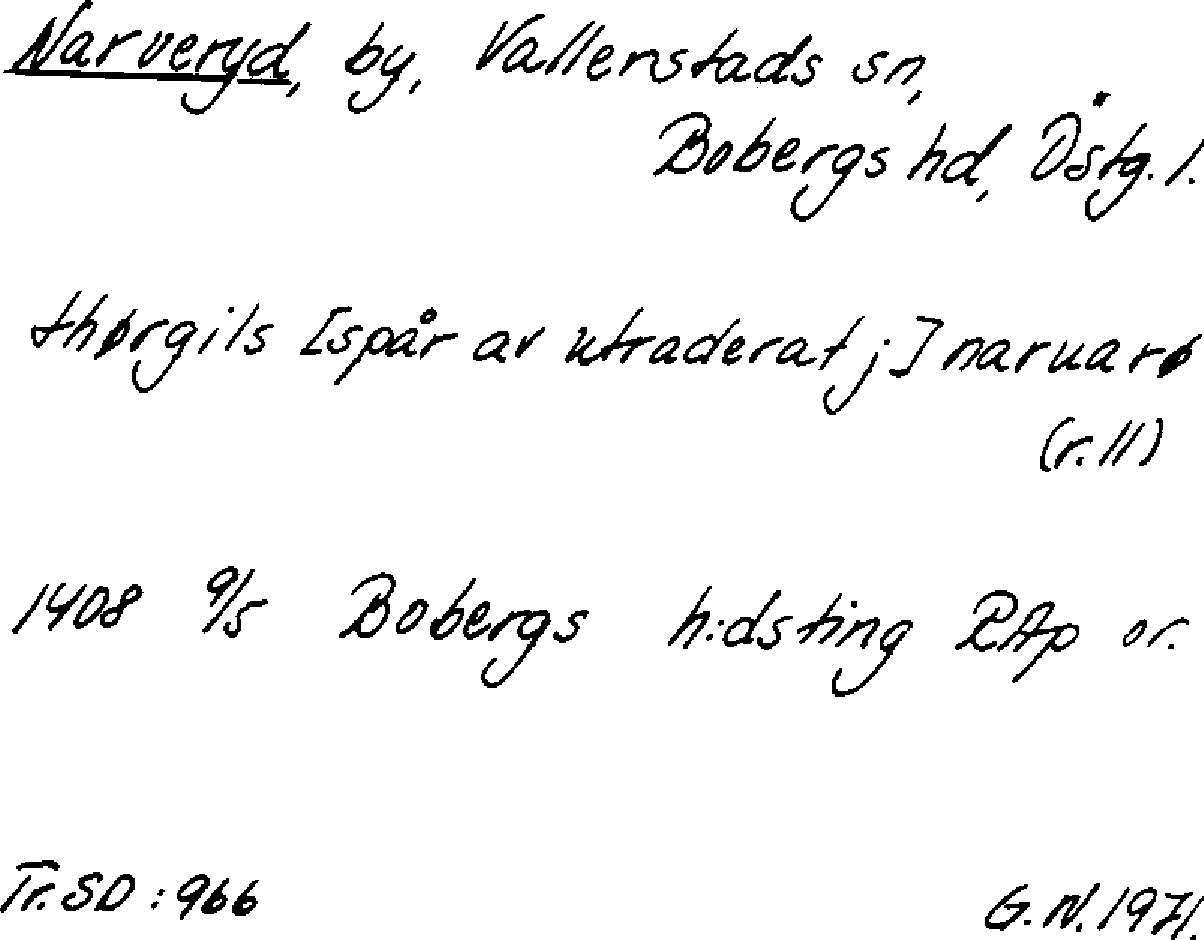 Narveryd, by, Vallerstads sn,
Bobergs hd, Östg. l.
thørgils [spår av utraderat j] naruarø
(r. 11)
1408 9/5 Bobergs h:dsting RAp or.
Tr. SD : 966
G. N. 1971.